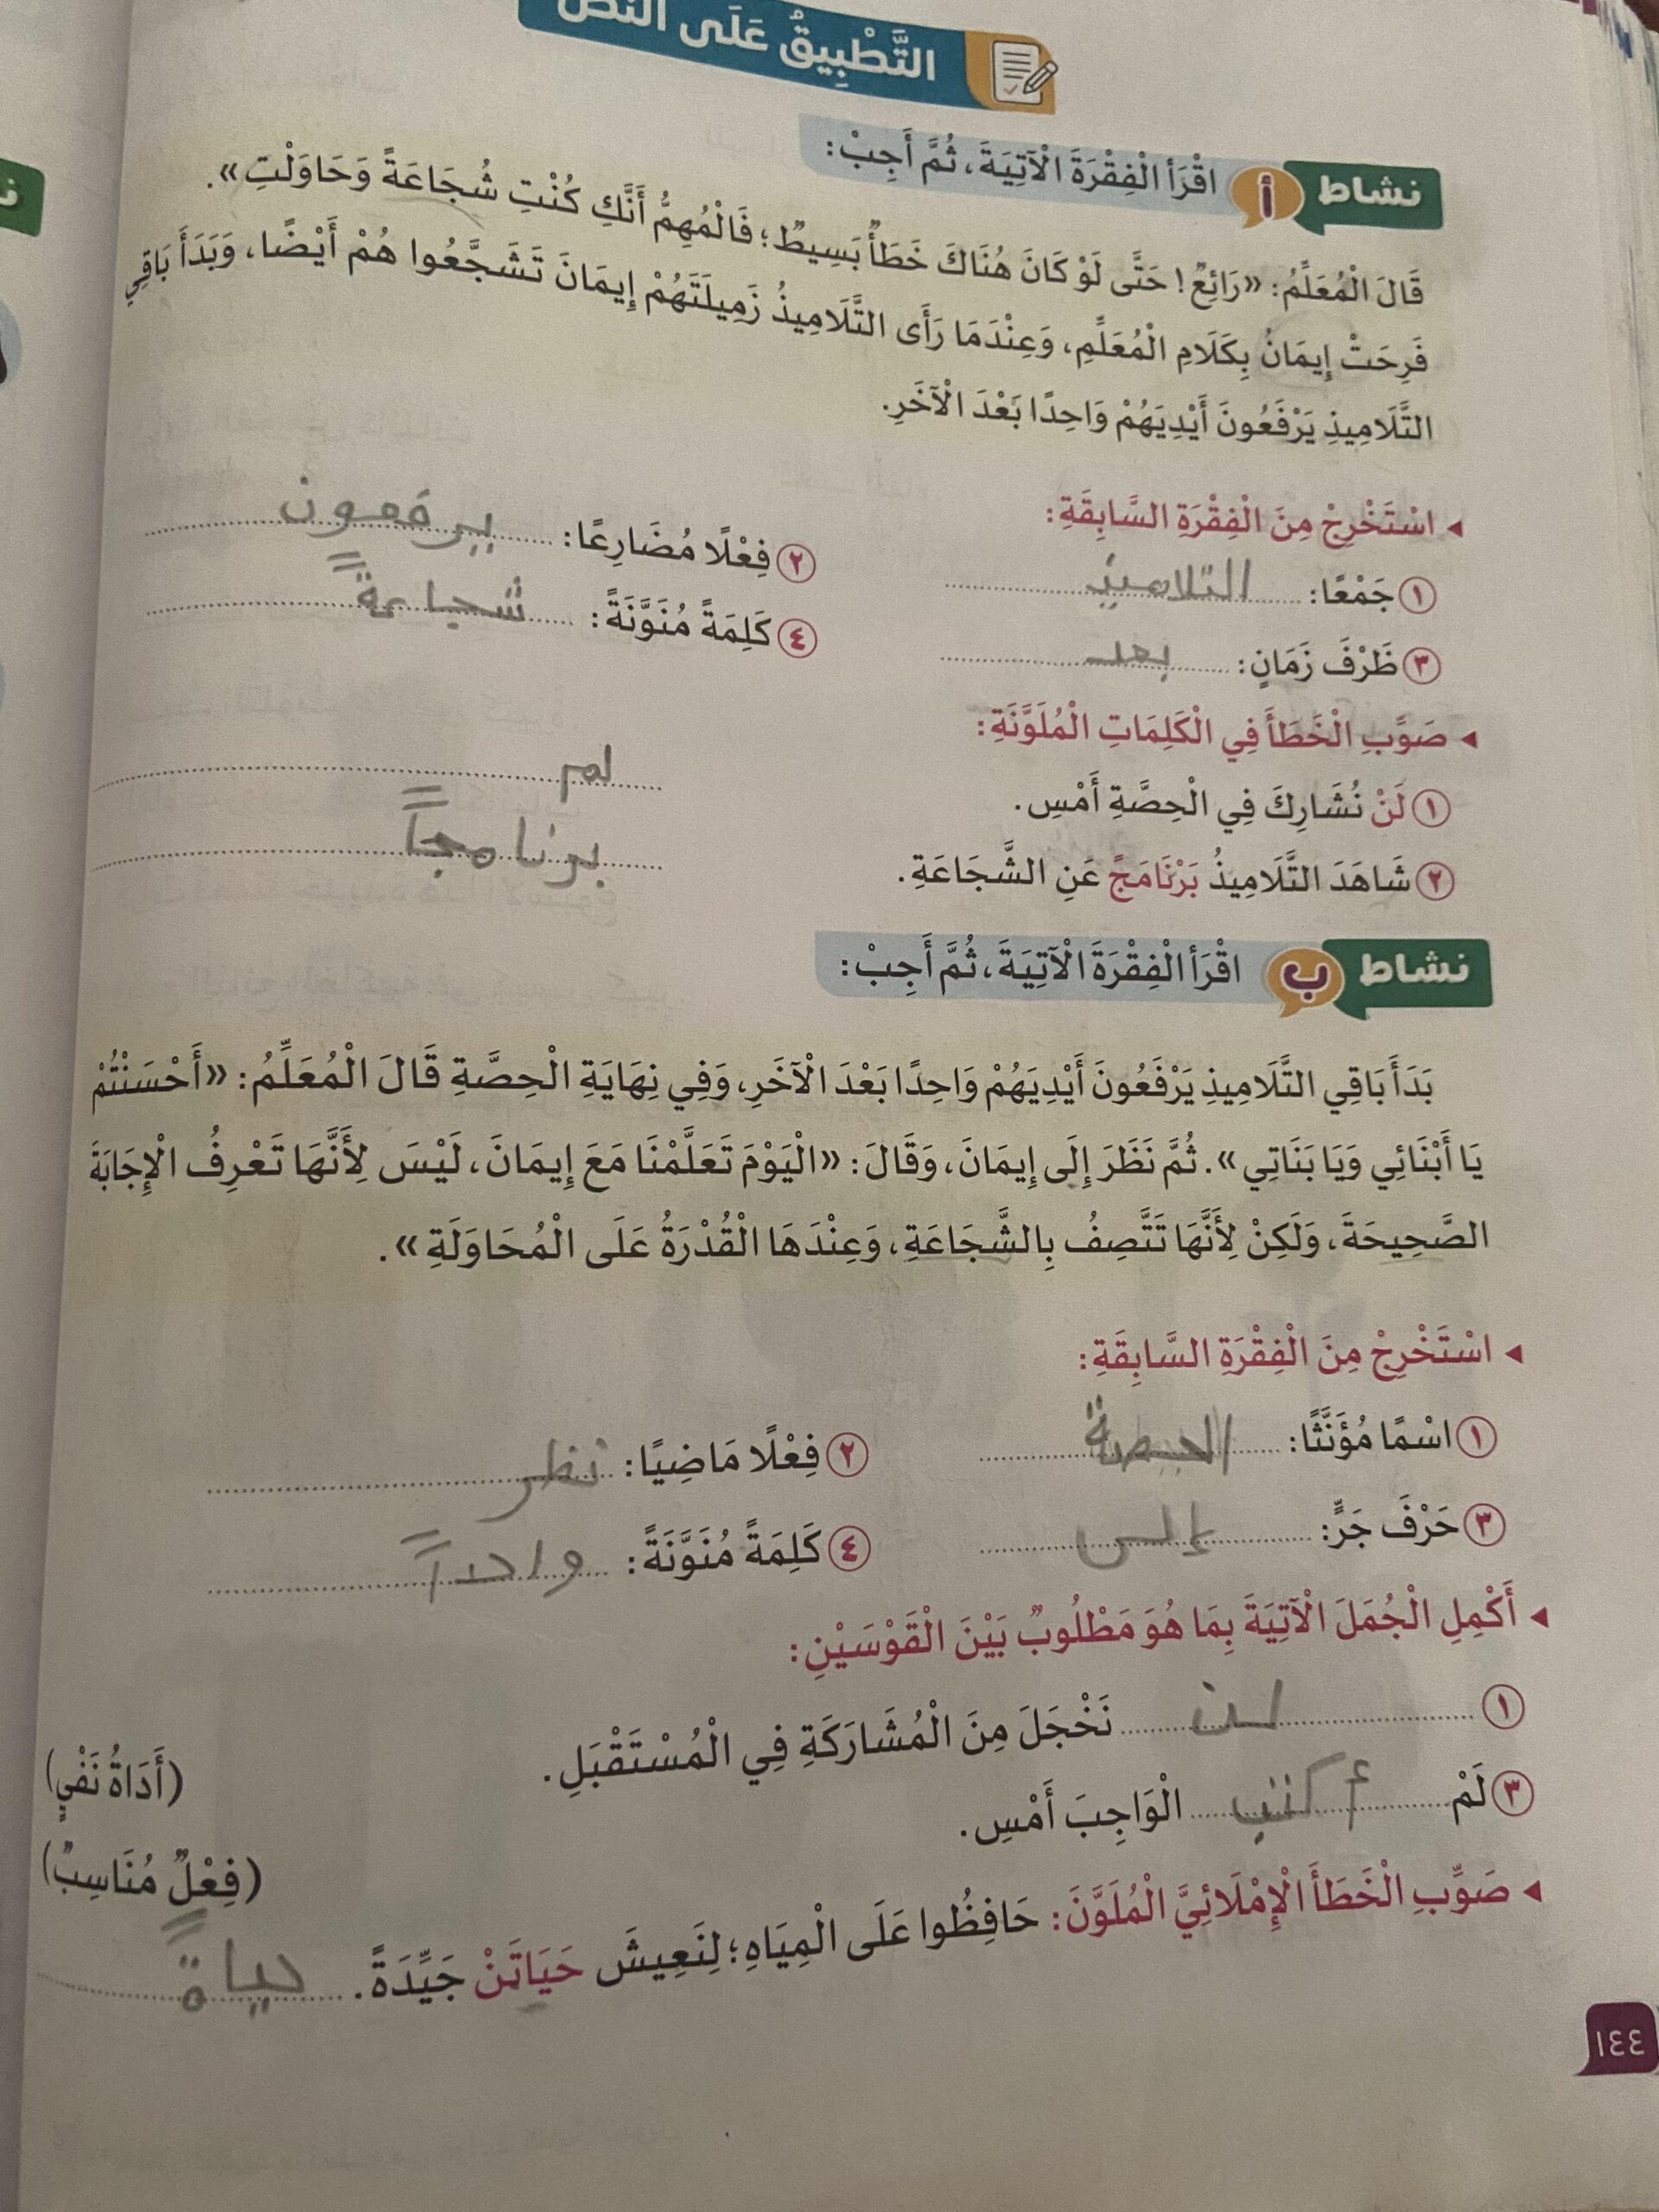 التَّطْبِيقُ عَلَى النَّصِّ
نشاط أ اقْرَأِ الْفِقْرَةَ الْآتِيَةَ، ثُمَّ أَجِبْ:
قَالَ الْمُعَلِّمُ: «رَائِعٌ! حَتَّى لَوْ كَانَ هُنَاكَ خَطَأٌ بَسِيطٌ؛ فَالْمُهِمُّ أَنَّكِ كُنْتِ شُجَاعَةً وَحَاوَلْتِ».
فَرِحَتْ إِيمَانُ بِكَلَامِ الْمُعَلِّمِ، وَعِنْدَمَا رَأَى التَّلَامِيذُ زَمِيلَتَهُمْ إِيمَانَ تَشَجَّعُوا هُمْ أَيْضًا، وَبَدَأَ بَاقِي
التَّلَامِيذِ يَرْفَعُونَ أَيْدِيَهُمْ وَاحِدًا بَعْدَ الْآخَرِ.
◂ اسْتَخْرِجْ مِنَ الْفِقْرَةِ السَّابِقَةِ:
١ جَمْعًا: التلاميذ ٢ فِعْلًا مُضَارِعًا: يرفعون
٣ ظَرْفَ زَمَانٍ: بعد ٤ كَلِمَةً مُنَوَّنَةً: شجاعةً
◂ صَوِّبِ الْخَطَأَ فِي الْكَلِمَاتِ الْمُلَوَّنَةِ:
١ لَنْ نُشَارِكَ فِي الْحِصَّةِ أَمْسِ. لم
٢ شَاهَدَ التَّلَامِيذُ بَرْنَامَجً عَنِ الشَّجَاعَةِ. برنامجاً
نشاط ب اقْرَأِ الْفِقْرَةَ الْآتِيَةَ، ثُمَّ أَجِبْ:
بَدَأَ بَاقِي التَّلَامِيذِ يَرْفَعُونَ أَيْدِيَهُمْ وَاحِدًا بَعْدَ الْآخَرِ، وَفِي نِهَايَةِ الْحِصَّةِ قَالَ الْمُعَلِّمُ: «أَحْسَنْتُمْ
يَا أَبْنَائِي وَيَا بَنَاتِي». ثُمَّ نَظَرَ إِلَى إِيمَانَ، وَقَالَ: «الْيَوْمَ تَعَلَّمْنَا مَعَ إِيمَانَ، لَيْسَ لِأَنَّهَا تَعْرِفُ الْإِجَابَةَ
الصَّحِيحَةَ، وَلَكِنْ لِأَنَّهَا تَتَّصِفُ بِالشَّجَاعَةِ، وَعِنْدَهَا الْقُدْرَةُ عَلَى الْمُحَاوَلَةِ».
◂ اسْتَخْرِجْ مِنَ الْفِقْرَةِ السَّابِقَةِ:
١ اسْمًا مُؤَنَّثًا: الحصة ٢ فِعْلًا مَاضِيًا: نظر
٣ حَرْفَ جَرٍّ: إلى ٤ كَلِمَةً مُنَوَّنَةً: واحداً
◂ أَكْمِلِ الْجُمَلَ الْآتِيَةَ بِمَا هُوَ مَطْلُوبٌ بَيْنَ الْقَوْسَيْنِ:
١ لن نَخْجَلَ مِنَ الْمُشَارَكَةِ فِي الْمُسْتَقْبَلِ. (أَدَاةُ نَفْيٍ)
٣ لَمْ أكتب الْوَاجِبَ أَمْسِ. (فِعْلٌ مُنَاسِبٌ)
◂ صَوِّبِ الْخَطَأَ الْإِمْلَائِيَّ الْمُلَوَّنَ: حَافِظُوا عَلَى الْمِيَاهِ؛ لِنَعِيشَ حَيَاتَنْ جَيِّدَةً. حياةً
١٤٤